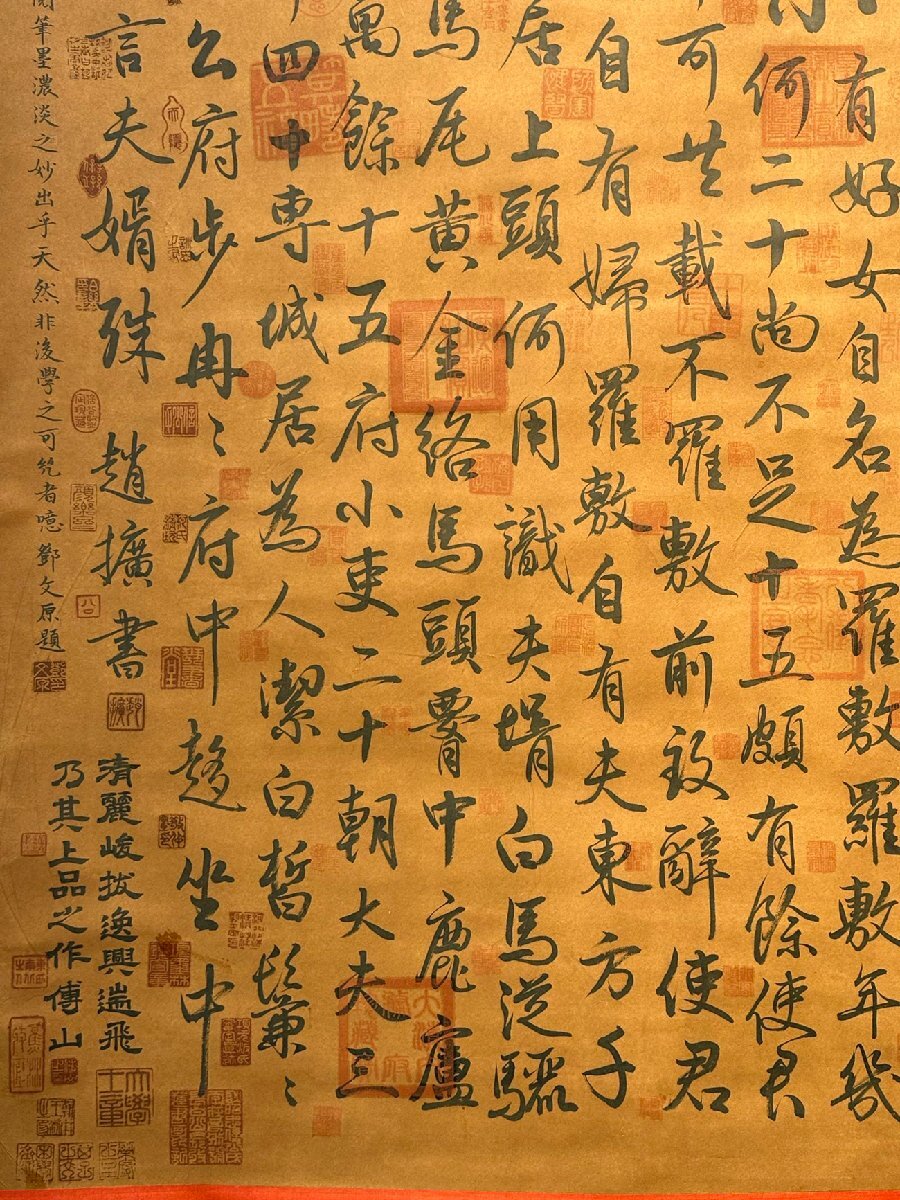 有好女自名為羅敷羅敷年幾
何二十尚不足十五頗有餘使君
可共載不羅敷前致辭使君
自有婦羅敷自有夫東方千
居上頭何用識夫壻白馬從驪
馬尾黃金絡馬頭腰中鹿盧
萬餘十五府小吏二十朝大夫三
四十專城居為人潔白皙鬑〻
公府步冉〻府中趨坐中
言夫婿殊 趙擴書
筆墨濃淡之妙出乎天然非後學之可者噫鄧文原題
清麗峻拔逸興遄飛
乃其上品之作傅山